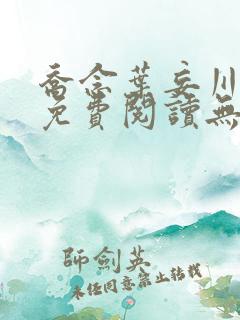 喬念葉妄川
免費閱讀無
師劍英
未經同意禁止轉載